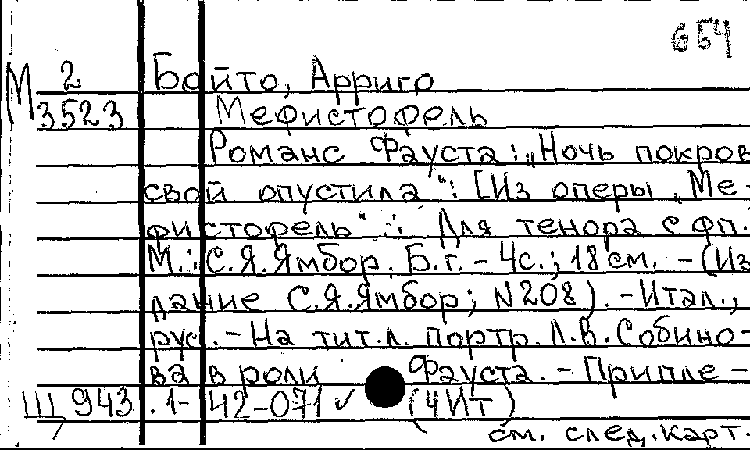 654
М 2 Бойто, Арриго
3523 Мефистофель
Романс Фауста: „Ночь покров
свой опустила": [Из оперы „Ме-
фистофель" : Для тенора с фп.
М.: С.Я.Ямбор. Б.г. - 4с.; 18 см. - (Из
дание С.Я.Ямбор; N208). - Итал.,
рус. - На тит.л. портр. Л.В.Собино-
ва в роли Фауста. - Припле -
Ш 943. 1- 42-071 ✓ (4Ит)
см. след. карт.